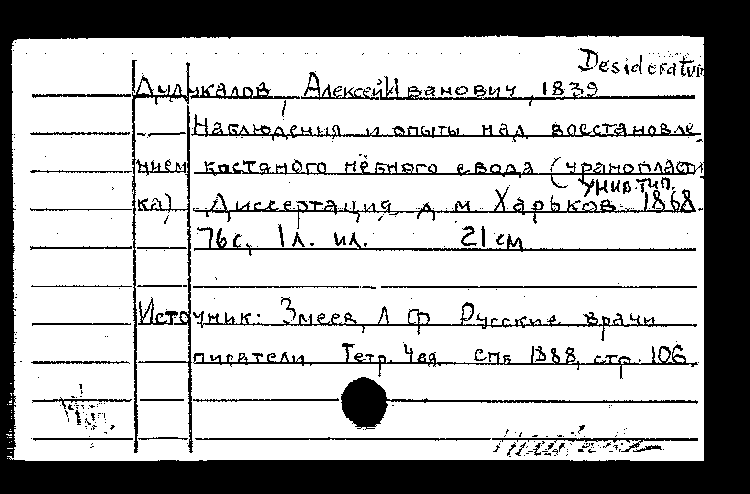 Desideratum
Дудукалов, Алексей Иванович, 1839
Наблюдения и опыты над восстановле-
нием костяного нёбного свода (уранопласти-
ка) Диссертация д м Харьков Унив. тип. 1868
76 с, 1 л. ил. 21 см
Источник: Змеев, Л Ф Русские врачи
писатели Тетр. 4ая СПб 1888, стр. 106.